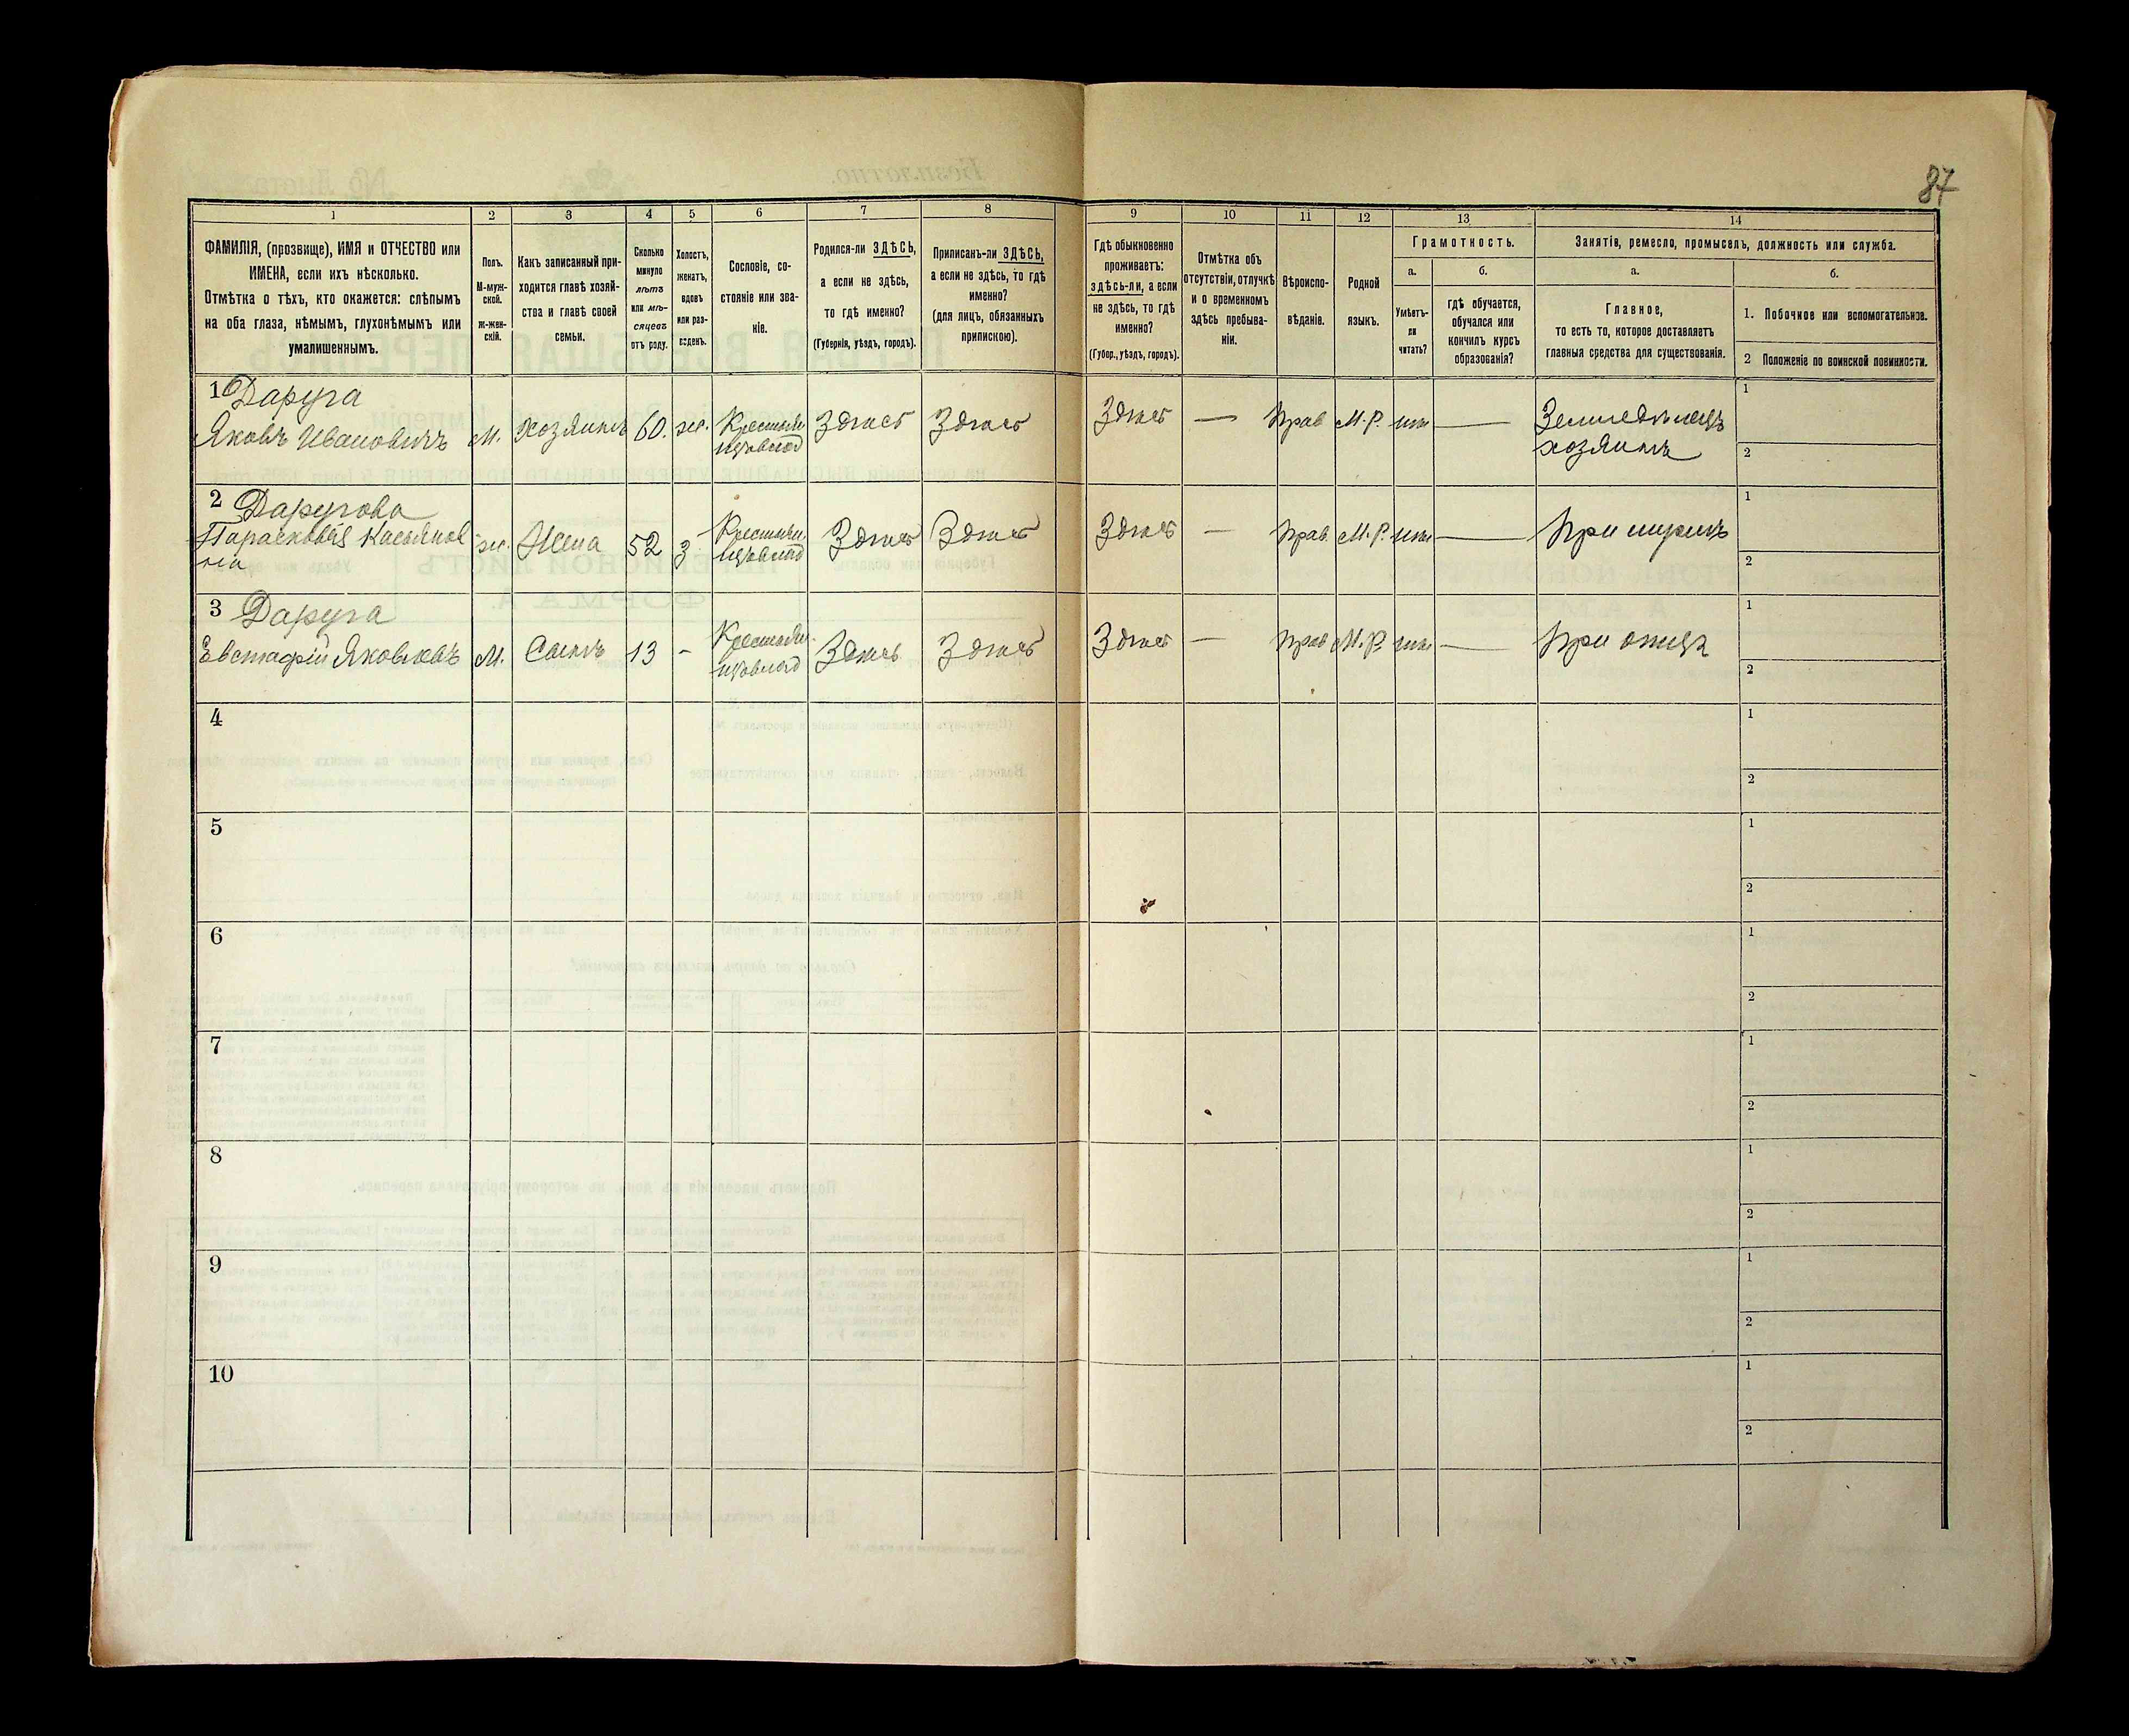 87
1 2 3 4 5 6 7 8 9 10 11 12 13 14
ФАМИЛІЯ, (прозвище), ИМЯ и ОТЧЕСТВО или
ИМЕНА, если ихъ нѣсколько.
Отмѣтка о тѣхъ, кто окажется: слѣпымъ
на оба глаза, нѣмымъ, глухонѣмымъ или
умалишеннымъ.
Полъ.
М-муж-
ской.
ж-жен-
скій.
Какъ записанный при-
ходится главѣ хозяй-
ства и главѣ своей
семьи.
Сколько
минуло
лѣтъ
или мѣ-
сяцевъ
отъ роду.
Холостъ,
женатъ,
вдовъ
или раз-
веденъ.
Сословіе, со-
стояніе или зва-
ніе.
Родился-ли ЗДѢСЬ,
а если не здѣсь,
то гдѣ именно?
(Губернія, уѣздъ, городъ).
Приписанъ-ли ЗДѢСЬ,
а если не здѣсь, то гдѣ
именно?
(для лицъ, обязанныхъ
припискою).
Гдѣ обыкновенно
проживаетъ:
здѣсь-ли, а если
не здѣсь, то гдѣ
именно?
(Губор., уѣздъ, городъ).
Отмѣтка объ
отсутствіи, отлучкѣ
и о временномъ
здѣсь пребыва-
ніи.
Вѣроиспо-
вѣданіе.
Родной
языкъ.
Грамотность.
а.
Умѣетъ-
ли
читать?
б.
гдѣ обучается,
обучался или
кончилъ курсъ
образованія?
Занятіе, ремесло, промыселъ, должность или служба.
а.
Главное,
то есть то, которое доставляетъ
главныя средства для существованія.
б.
1. Побочное или вспомогательное.
2 Положеніе по воинской повинности.
1 Даруга
Яковъ Ивановичъ М. Хозяинъ 60. же. Крестьян. Здѣсь Здѣсь Здѣсь — Прав М.Р. нѣт — Земледѣлецъ
хозяинъ
1
2
2 Даругова
Парасковія Касьянов
на ж. Жена 52 З. Крестьян. Здѣсь Здѣсь Здѣсь — Прав. М.Р. нѣт — При мужѣ
1
2
3 Даруга
Евстафій Яковлевъ М. Сынъ 13 - Крестьян. Здѣсь Здѣсь Здѣсь — Прав М.Р. нѣт — При отцѣ
1
2
4 1
2
5 1
2
6 1
2
7 1
2
8 1
2
9 1
2
10 1
2